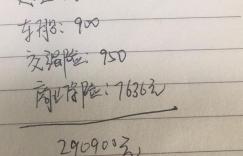 车船: 900
交强险: 950
商业保险: 7636元
290900元